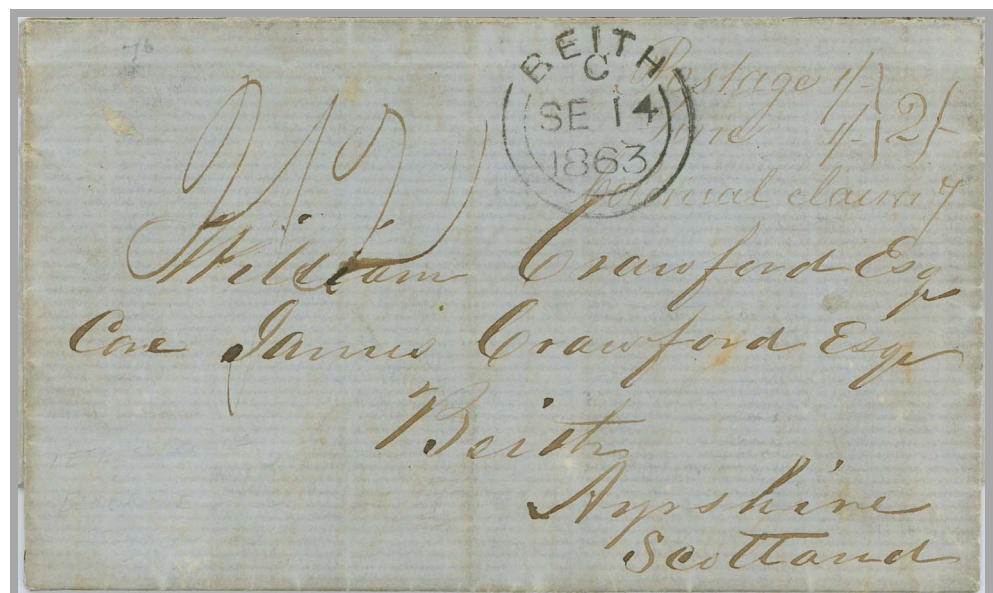 BEITH
C
SE 14
1863
Postage 1/-
Fine 1/- } 2/-
Colonial claim 7
William Crawford Esq
Care James Crawford Esqr
Beith
Ayrshire
Scotland